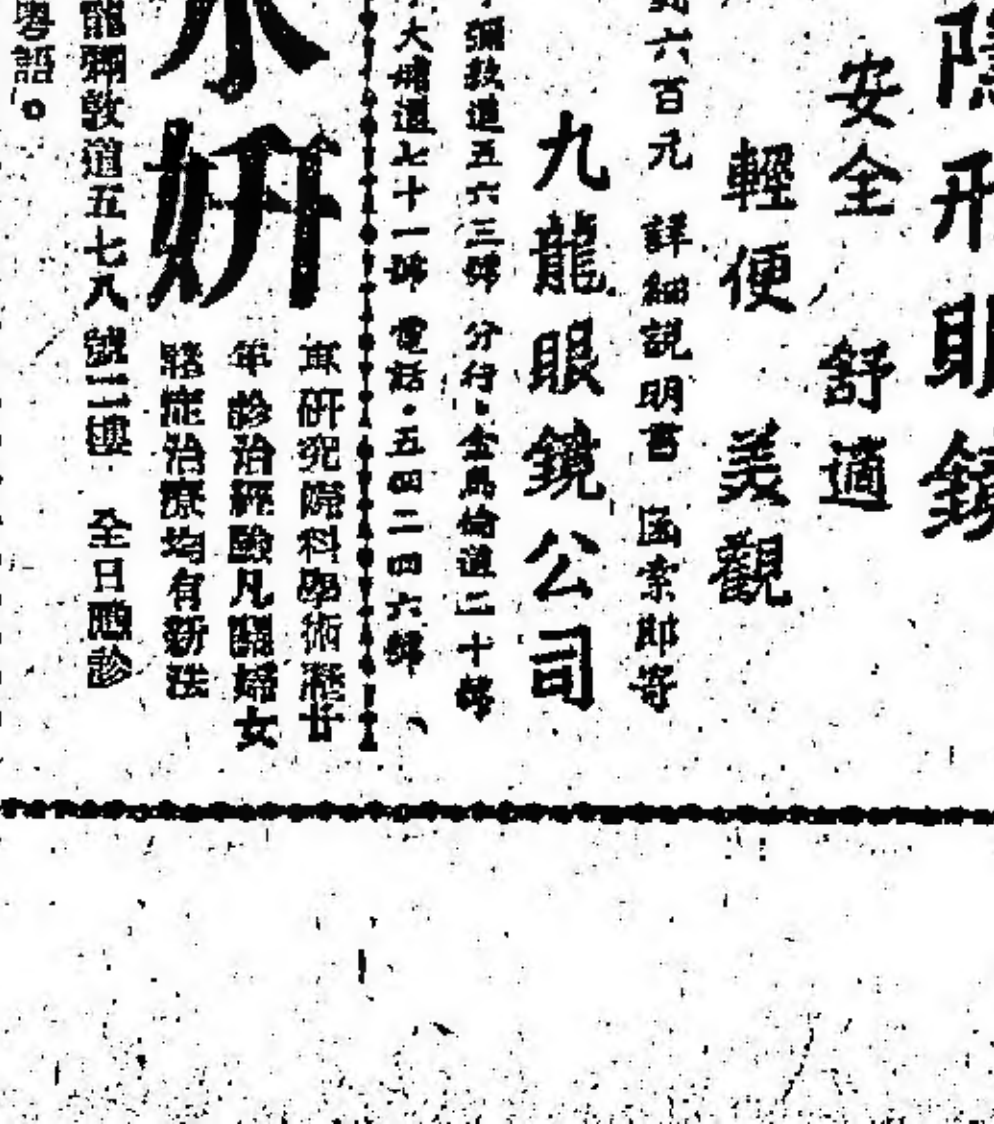 隱形眼鏡
安全 舒適
輕便 美觀
六百元 詳細説明書 函索即寄
九龍眼鏡公司
彌敦道五六三號 分行·金馬倫道二十號
大埔道七十一號 電話·五四二四六號
妍
研究院科學術歷廿
年診治經驗凡關婦女
症治療均有新法
龍彌敦道五七八號二樓 全日應診
粵語。